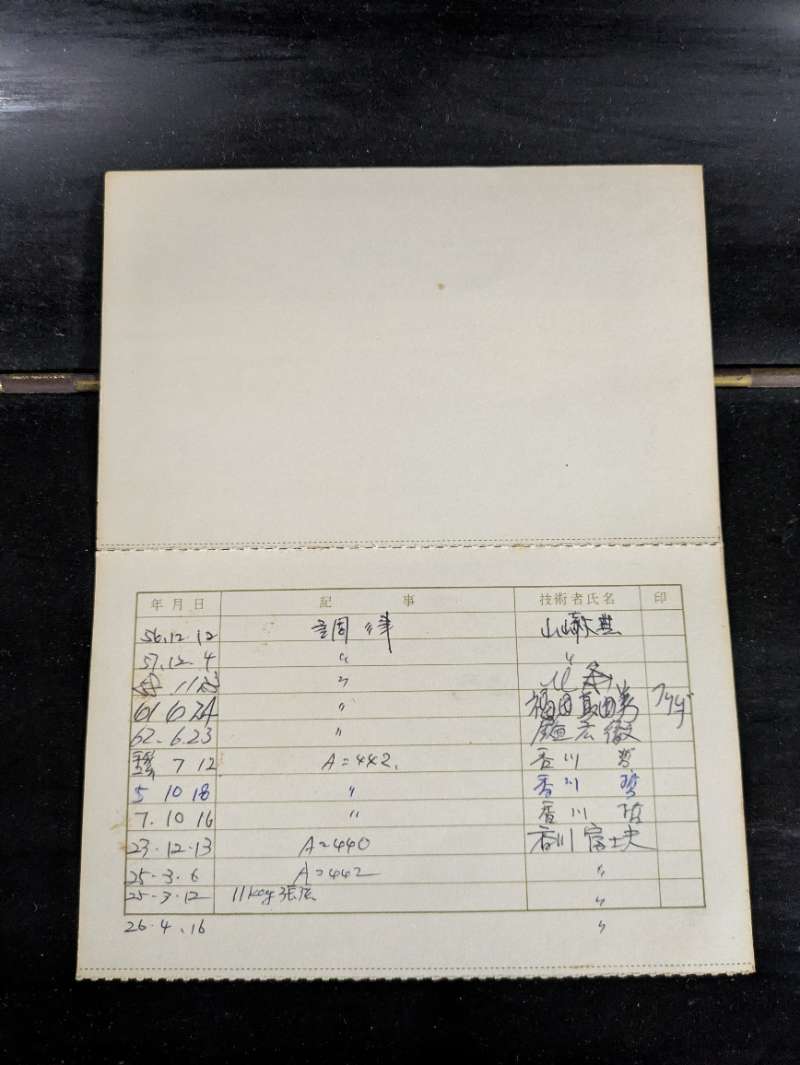 年月日 記事 技術者氏名 印
56.12.12 調律 山崎
57.12.4 〃 〃
〃
61 6 24 〃 福田
62.6.23 〃
7 12 A=442. 香川 哲
5 10 18 〃 香川 哲
7.10 16 〃 香川 哲
23.12.13 A=440 香川 富士夫
25-3.6 A=442 〃
25-3.12 11key 張弦 〃
26.4.16 〃